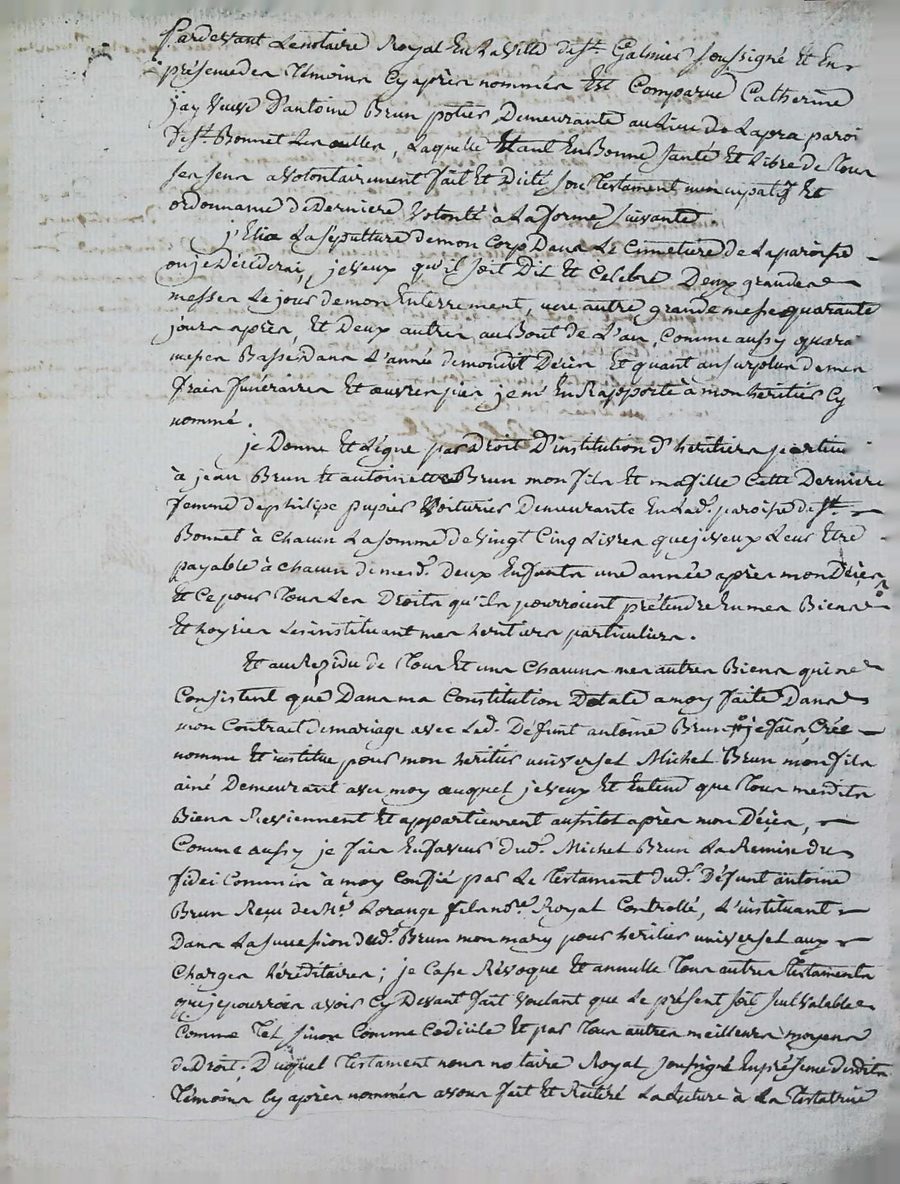 Pardevant Lenotaire Royal En La Ville de St. Galmier soussigné Et En
présence des Témoins Cy après nommés Est Comparue Catherine
jay Veuve D'antoine Brun potier Demeurante au Lieu de Lapra paroi
de St. Bonnet Les oulles, Laquelle Etant En Bonne santé Et Libre de Tous
ses sens a volontairement fait Et Dicté son Testament nuncupatif Et
ordonnance de Derniere Volonté à La forme suivante.
j'Elis La sépulture de mon Corp Dans Le Cimetiere de La paroisse
ou je Décéderai, je veux qu'il soit Dit Et Celebré Deux grandes
messes Le jour de mon Enterrement, une autre grande messe quarante
jours après, Et Deux autres au Bout de L'an, Comme aussy quara
messes Basses Dans L'année de mondit Décès Et quant au surplus de mes
frais funéraires Et œuvres pies je m'En Rapporte à mon héritier Cy
nommé.
je Donne Et Légue par Droit D'institution D'héritiers particu
à jean Brun Et antoinette Brun mon fils Et ma fille Cette Derniere
femme de philipe pupier Voiturier Demeurante En Lad. paroisse de St.
Bonnet à Chacun La somme de Vingt Cinq Livres que je veux Leur Etre
payable à Chacun de mesd. Deux Enfants une année après mon Décès
Et Ce pour Tous Les Droits qu'ils pourroient prétendre En mes Biens
Et hoyries Les instituant mes héritiers particuliers.
Et au Residu de Tous Et uns Chacuns mes autres Biens qui ne
Consistent que Dans ma Constitution Dotale a moy faite Dans
mon Contrat de mariage avec Led. Défunt antoine Brun je fais, Crée
nomme Et institue pour mon héritier universel Michel Brun mon fils
ainé Demeurant avec moy auquel je veux Et Entend que Tous mesdits
Biens Reviennent Et appartiennent aussitot après mon Décès,
Comme aussy je fais En faveur dud. Michel Brun La Remise du
fideicommis à moy Confié par Le Testament dud. Défunt antoine
Brun Reçu de Me. Lorange fils nore. Royal Controllé, L'instituant
Dans La succession dud. Brun mon mary pour héritier universel aux
Charges héréditaires; je Casse Révoque Et annulle Tous autres Testaments
que je pourrois avoir Cy Devant fait voulant que Le présent soit seul Valable
Comme Tel sinon Comme Codicile Et par Tous autres meilleurs moyens
de Droit. Duquel Testament nous notaire Royal soussigné En présence desdits
Témoins Cy après nommés avons fait Et Réiteré La Lecture à La Testatrice